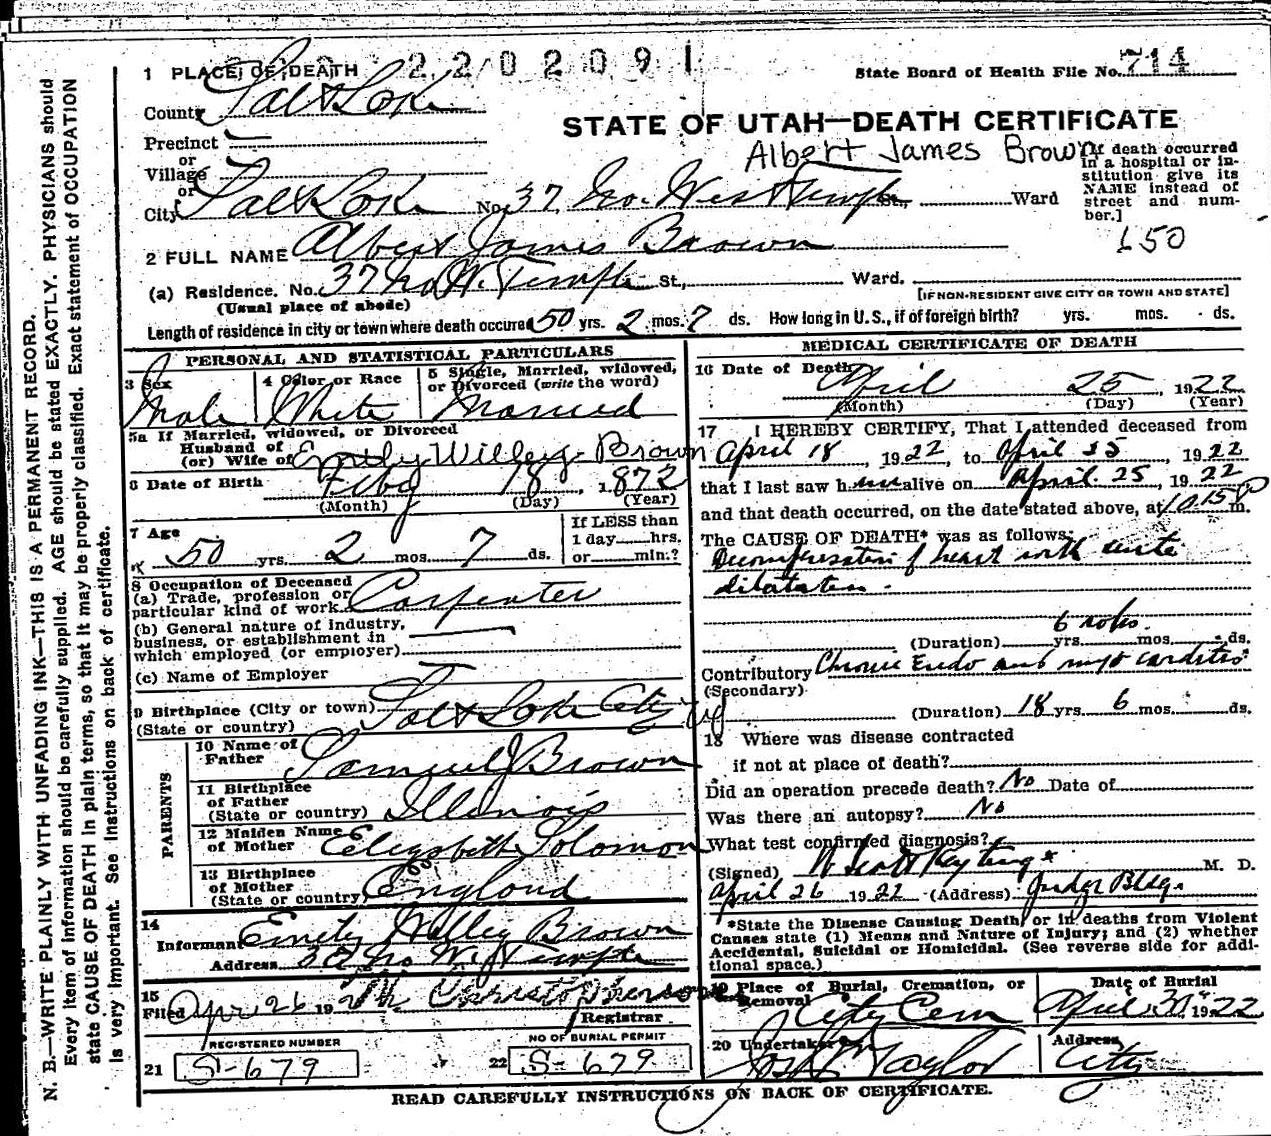 N. B.—WRITE PLAINLY WITH UNFADING INK—THIS IS A PERMANENT RECORD.
Every item of information should be carefully supplied. AGE should be stated EXACTLY. PHYSICIANS should
state CAUSE OF DEATH in plain terms, so that it may be properly classified. Exact statement of OCCUPATION
is very important. See instructions on back of certificate.
1 PLACE OF DEATH 2202091
State Board of Health File No. 714
County Salt Lake
STATE OF UTAH—DEATH CERTIFICATE
Precinct
or
Village
or
Albert James Brown
City Salt Lake No. 37 No. West Temple St., Ward
[If death occurred
in a hospital or in-
stitution give its
NAME instead of
street and num-
ber.]
150
2 FULL NAME Albert James Brown
(a) Residence. No. 37 No W. Temple St., Ward.
(Usual place of abode) [IF NON-RESIDENT GIVE CITY OR TOWN AND STATE]
Length of residence in city or town where death occured 50 yrs. 2 mos. 7 ds. How long in U. S., if of foreign birth? yrs. mos. ds.
PERSONAL AND STATISTICAL PARTICULARS
3 Sex 4 Color or Race 5 Single, Married, widowed,
or Divorced (write the word)
Male White Married
5a If Married, widowed, or Divorced
Husband of
(or) Wife of Emily Willey Brown
6 Date of Birth Feby 18, 1872
(Month) (Day) (Year)
7 Age
50 yrs. 2 mos. 7 ds.
If LESS than
1 day hrs.
or min.?
8 Occupation of Deceased
(a) Trade, profession or
particular kind of work Carpenter
(b) General nature of industry,
business, or establishment in
which employed (or employer)
(c) Name of Employer
9 Birthplace (City or town) Salt Lake City
(State or country)
PARENTS
10 Name of
Father Samuel J Brown
11 Birthplace
of Father
(State or country) Illinois
12 Maiden Name
of Mother Elizabeth Solomon
13 Birthplace
of Mother
(State or country) England
14
Informant Emily Willey Brown
Address No W. Temple
15
Filed Apr 26 19
Registrar
REGISTERED NUMBER NO OF BURIAL PERMIT
21 S-679 22 S-679
MEDICAL CERTIFICATE OF DEATH
16 Date of Death April 25, 1922
(Month) (Day) (Year)
17 I HEREBY CERTIFY, That I attended deceased from
April 18, 1922, to April 25, 1922
that I last saw him alive on April 25, 1922
and that death occurred, on the date stated above, at 10.15 P m.
The CAUSE OF DEATH* was as follows:
Decompensation of heart with acute
dilatation.
(Duration) yrs. mos. ds.
Contributory Chronic Endo and myo carditis
(Secondary)
(Duration) 18 yrs. 6 mos. ds.
18 Where was disease contracted
if not at place of death?
Did an operation precede death? No Date of
Was there an autopsy? No
What test confirmed diagnosis?
(Signed) M. D.
April 26 1922 (Address) Judge Bldg.
*State the Disease Causing Death, or in deaths from Violent
Causes state (1) Means and Nature of Injury; and (2) whether
Accidental, Suicidal or Homicidal. (See reverse side for addi-
tional space.)
19 Place of Burial, Cremation, or
Removal City Cem
Date of Burial
April 30, 1922
20 Undertaker Taylor
Address
City
READ CAREFULLY INSTRUCTIONS ON BACK OF CERTIFICATE.